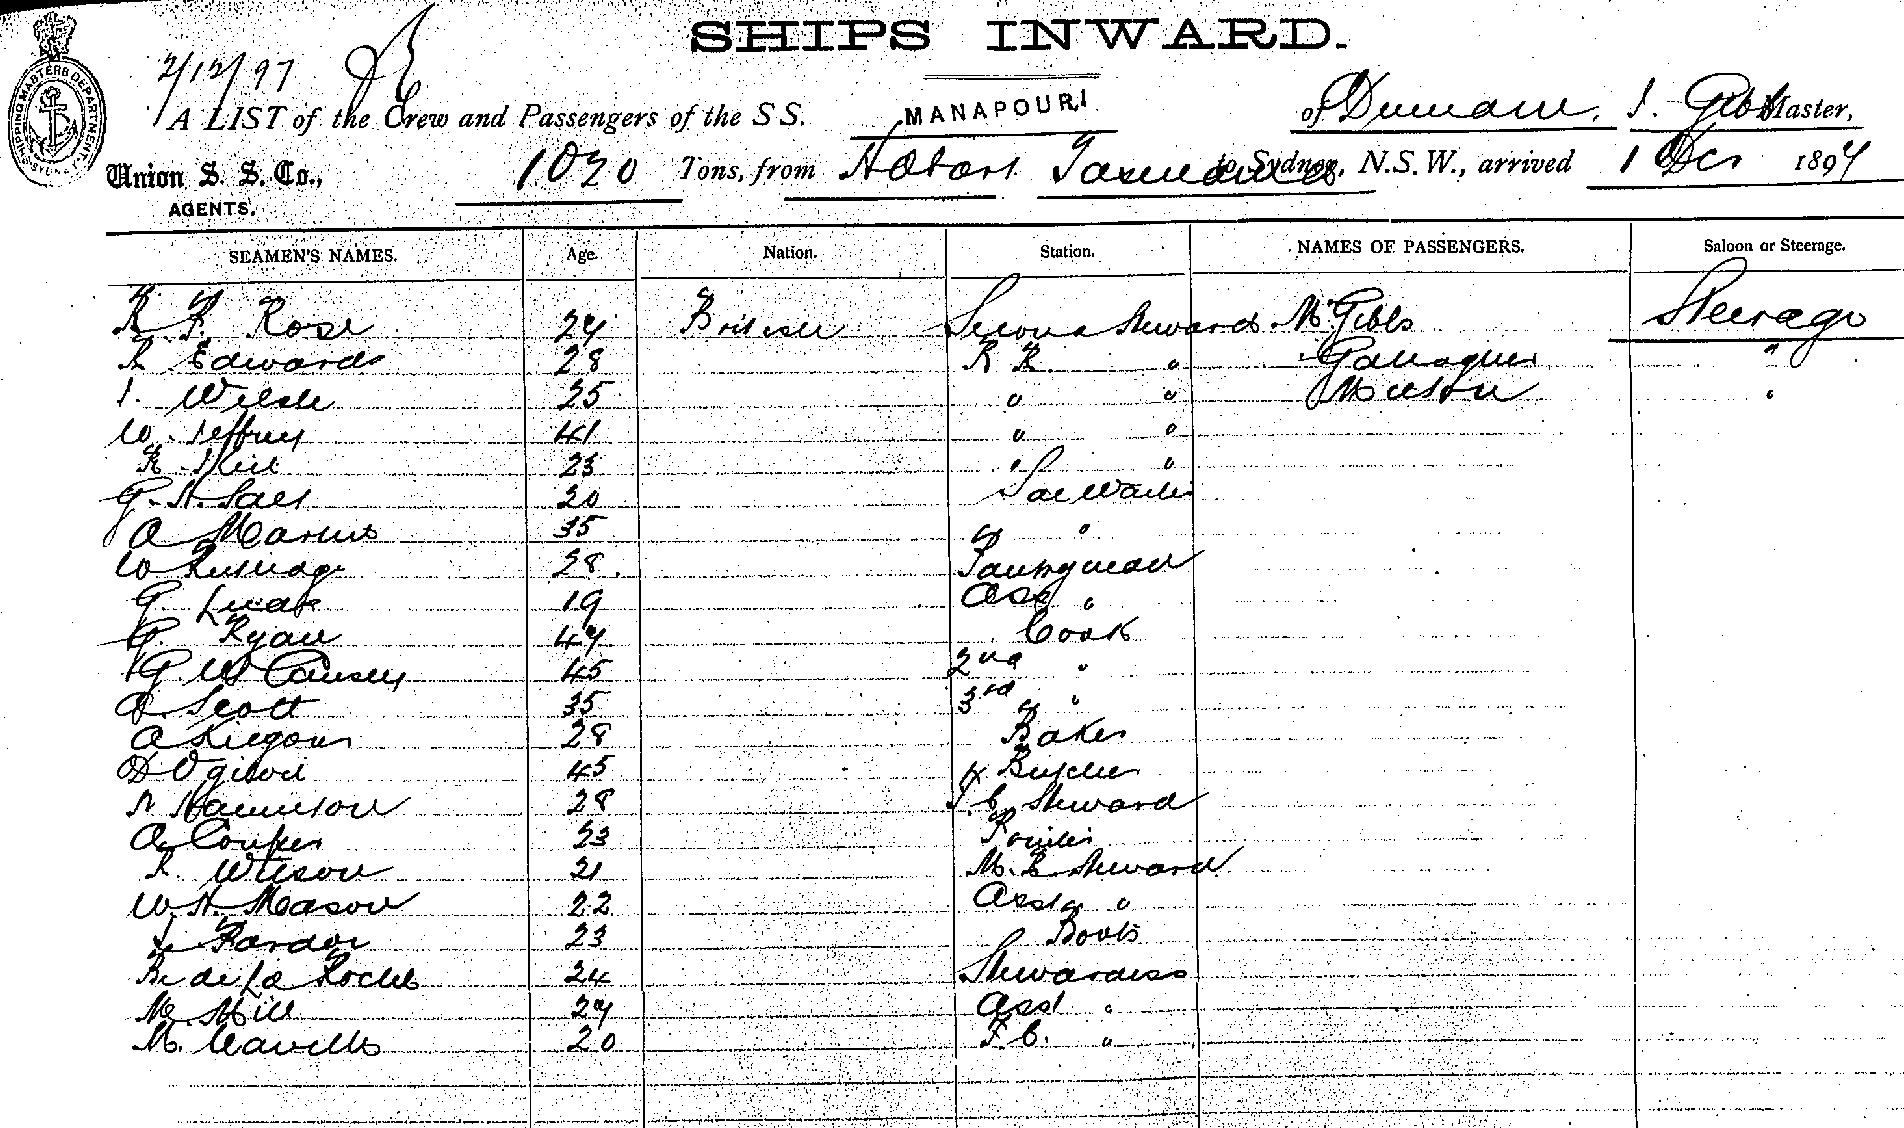 SHIPS INWARD.
2/12/97
SHIPPING MASTERS DEPARTMENT
A LIST of the Crew and Passengers of the S S. MANAPOURI of Dunedin, J. Gibb Master,
Union S. S. Co., AGENTS. 1020 Tons, from Hobart Tasmania to Sydney, N.S.W., arrived 1 Dec 1897
SEAMEN'S NAMES. Age. Nation. Station. NAMES OF PASSENGERS. Saloon or Steerage.
Rose 24 British Second Steward Mr Gibbs Steerage
R Edwards 28 R R " Gallagher "
J. Welsh 25 " " "
W. Jeffrey 41 " "
R 23 " "
G. H. Salt 20 Sal Waiter
A 35 " "
W 28 Pantryman
G. 19 Asst "
G. Ryan 47 Cook
G. W 45 2nd "
Scott 35 3rd " "
A Kilgour 28 Baker
D Ogilvie 45 Butcher
Hamilton 28 F C Steward
A. Couper 23 Porter
R. Wilson 21 M. R Steward
W. H. Mason 22 Asst " "
23 Boots
de la Roche 24 Stewardess
M. Hill 27 Asst "
M. 20 F. C. "